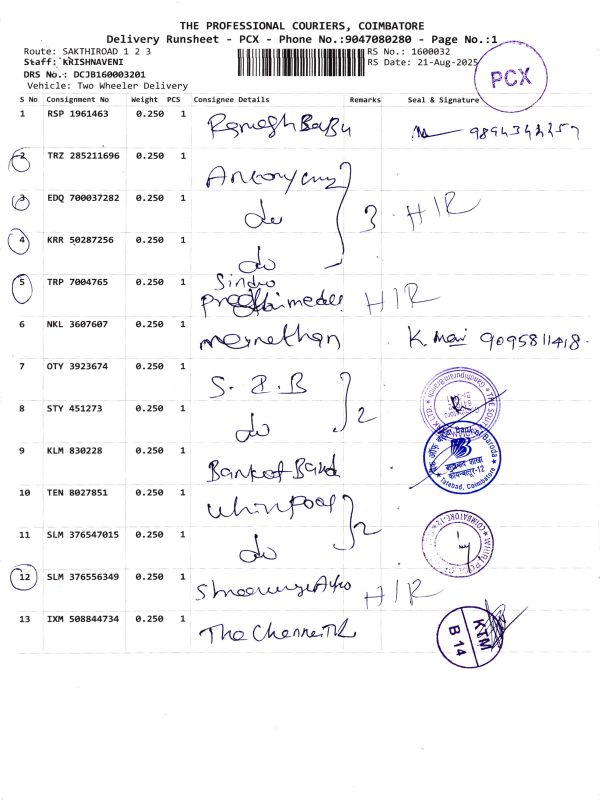 THE PROFESSIONAL COURIERS, COIMBATORE
Delivery Runsheet - PCX - Phone No.:9047080280 - Page No.:1
Route: SAKTHIROAD 1 2 3
RS No.: 1600032
Staff: KRISHNAVENI
RS Date: 21-Aug-2025
DRS No.: DCJB160003201
Vehicle: Two Wheeler Delivery
PCX
S No Consignment No Weight PCS Consignee Details Remarks Seal & Signature
1 RSP 1961463 0.250 1 Ramesh Babu 9894344257
2 TRZ 285211696 0.250 1
3 EDQ 700037282 0.250 1 do 3 H/R
4 KRR 50287256 0.250 1 do
5 TRP 7004765 0.250 1 H/R
6 NKL 3607607 0.250 1 K. Mani 9095811418.
7 OTY 3923674 0.250 1 S. I. B
8 STY 451273 0.250 1 do 2
9 KLM 830228 0.250 1 Bank of Baroda
Bank of Baroda
कोयम्बत्तूर-12
Tatabad, Coimbatore
10 TEN 8027851 0.250 1 Whirlpool
11 SLM 376547015 0.250 1 do 2
COIMBATORE-12
12 SLM 376556349 0.250 1 H/R
13 IXM 508844734 0.250 1 The Chennai
KTM
B 14